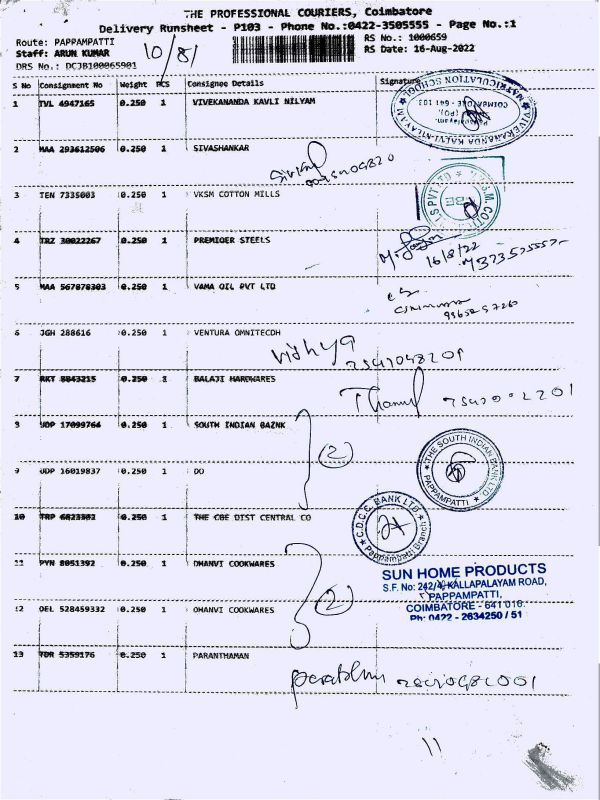 THE PROFESSIONAL COURIERS, Coimbatore
Delivery Runsheet - P103 - Phone No.:0422-3505555 - Page No.:1
Route: PAPPAMPATTI
RS No.: 1000659
Staff: ARUN KUMAR
RS Date: 16-Aug-2022
DRS No.: DCJB100065901
10/8/
S No Consignment No Weight PCS Consignee Details Signature
1 TVL 4947165 0.250 1 VIVEKANANDA KAVLI NILYAM
2 MAA 293612506 0.250 1 SIVASHANKAR
3 TEN 7335003 0.250 1 VKSM COTTON MILLS
4 TRZ 30022267 0.250 1 PREMIOER STEELS
16/8/22
5 MAA 567878303 0.250 1 VAMA OIL PVT LTD
6 JGH 288616 0.250 1 VENTURA OMNITECDH
Vidhya
7 RKT 8843215 0.250 1 BALAJI HARDWARES
8 UDP 17099764 0.250 1 SOUTH INDIAN BAZNK
(2)
THE SOUTH INDIAN BANK LTD
PAPPAMPATTI
9 UDP 16019837 0.250 1 DO
10 TRP 6823302 0.250 1 THE CBE DIST CENTRAL CO
C.D.C.C. BANK LTD.
Pappampatti Branch
11 PYN 8051392 0.250 1 DHANVI COOKWARES
(2)
SUN HOME PRODUCTS
S.F. No: 242/4, KALLAPALAYAM ROAD,
PAPPAMPATTI,
COIMBATORE - 641 016.
Ph: 0422 - 2634250 / 51
12 OEL 528459332 0.250 1 DHANVI COOKWARES
13 TDR 5359176 0.250 1 PARANTHAMAN
11